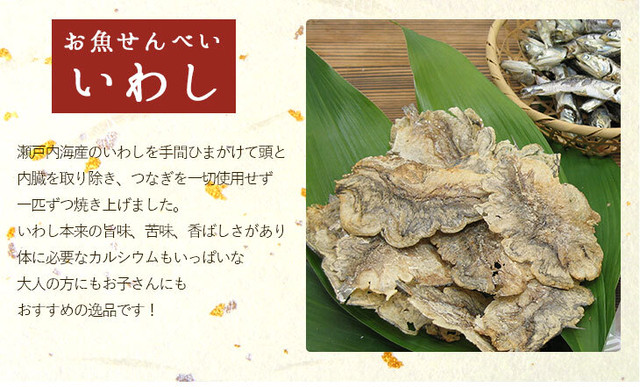 お魚せんべい
いわし
瀬戸内海産のいわしを手間ひまがけて頭と
内臓を取り除き、つなぎを一切使用せず
一匹ずつ焼き上げました。
いわし本来の旨味、苦味、香ばしさがあり
体に必要なカルシウムもいっぱいな
大人の方にもお子さんにも
おすすめの逸品です！